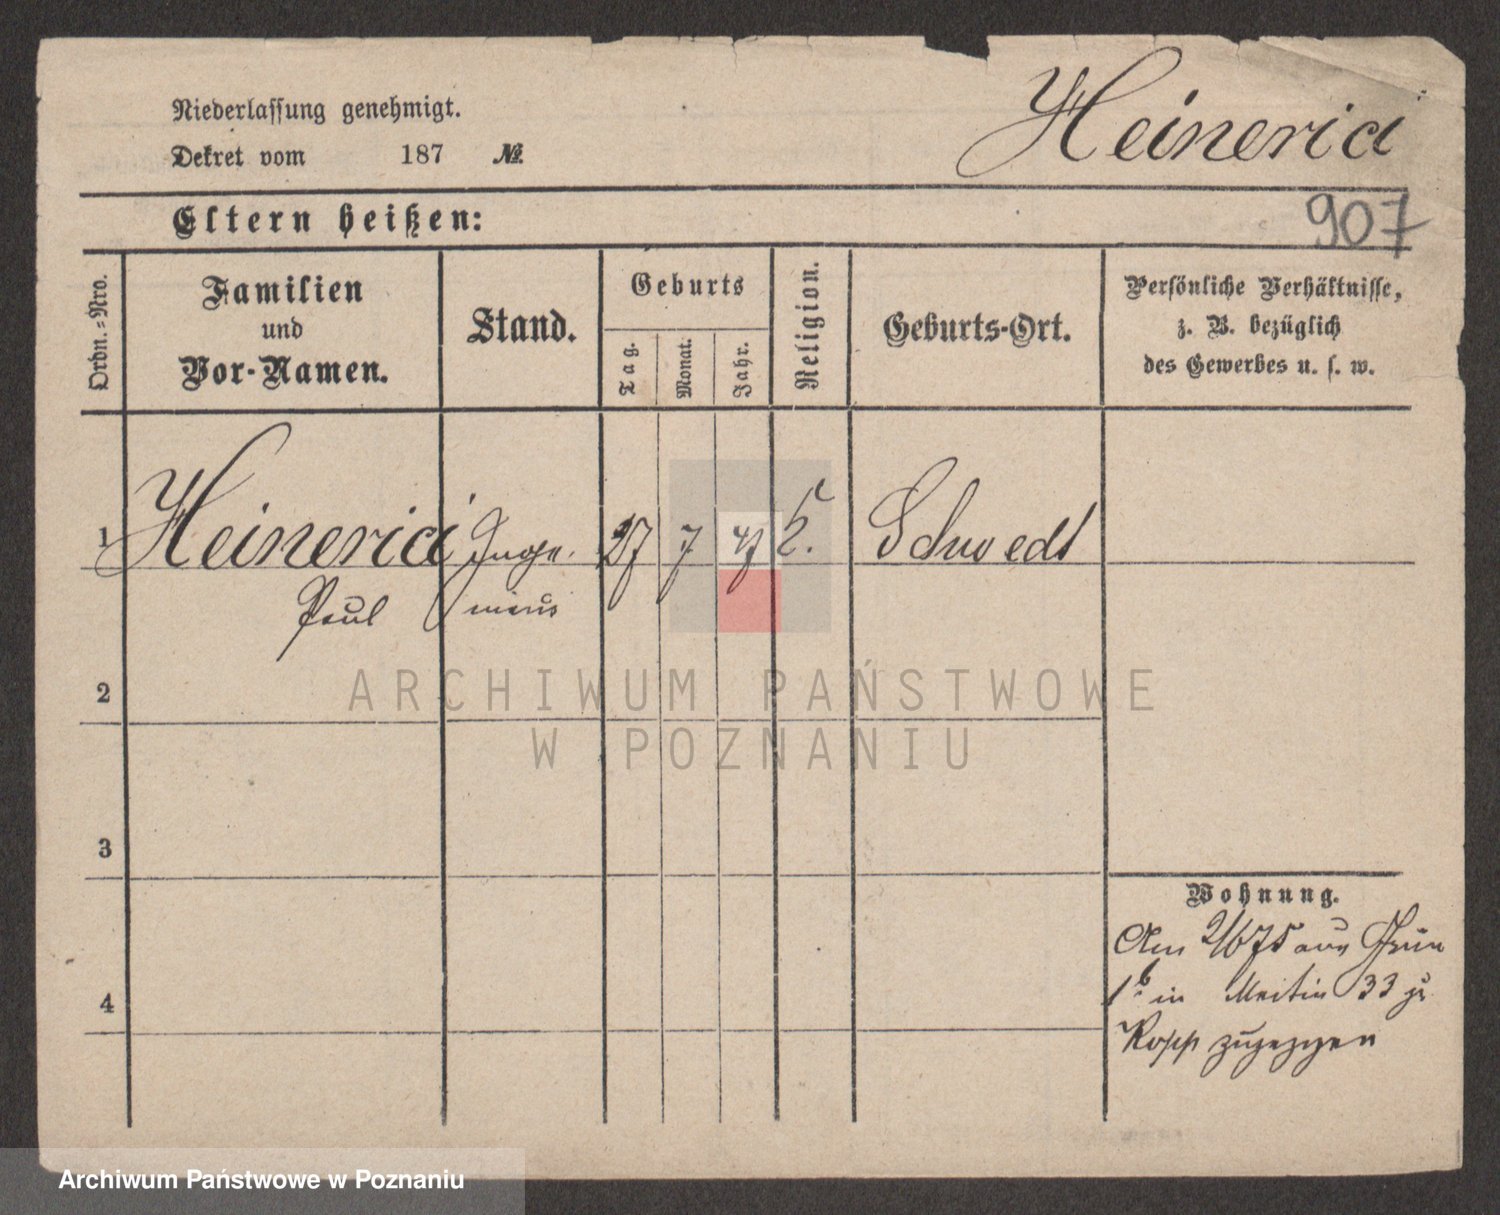 Niederlassung genehmigt.
Dekret vom 187 №
Heinerici
907
Eltern heißen:
Ordn.-Nro.
Familien
und
Vor-Namen.
Stand.
Geburts
Tag.
Monat.
Jahr.
Religion.
Geburts-Ort.
Persönliche Verhältnisse,
z. B. bezüglich
des Gewerbes u. s. w.
1 Heinerici Inge 27 7 47 Schwedt
Paul nieur
2
3
4
Wohnung.
Am 2/6 75 aus Grün
1b in Martin 33 zu
Kopp zugezogen
ARCHIWUM PAŃSTWOWE
W POZNANIU
Archiwum Państwowe w Poznaniu